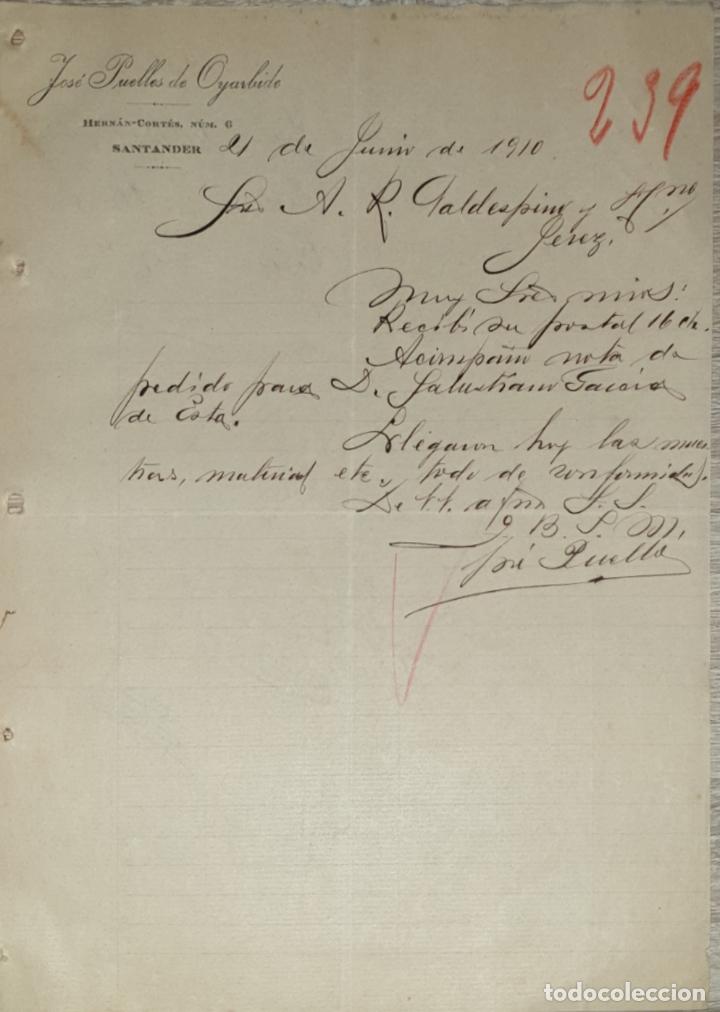 José Puelles de Oyarbide
239
HERNÁN-CORTÉS, NÚM. 6
SANTANDER 21 de Junio de 1910
Sres A. R. Valdespino y Hno
Jerez.
Muy Sres mios:
Recibí su postal 16 cte.
Acompaño nota de
pedido para D. Salustiano García
de Esta.
Llegaron hoy las mues
tras, material etc, todo de conformidad.
De Vt. afmo S. S.
q. B. S. M.
José Puelles
todocoleccion